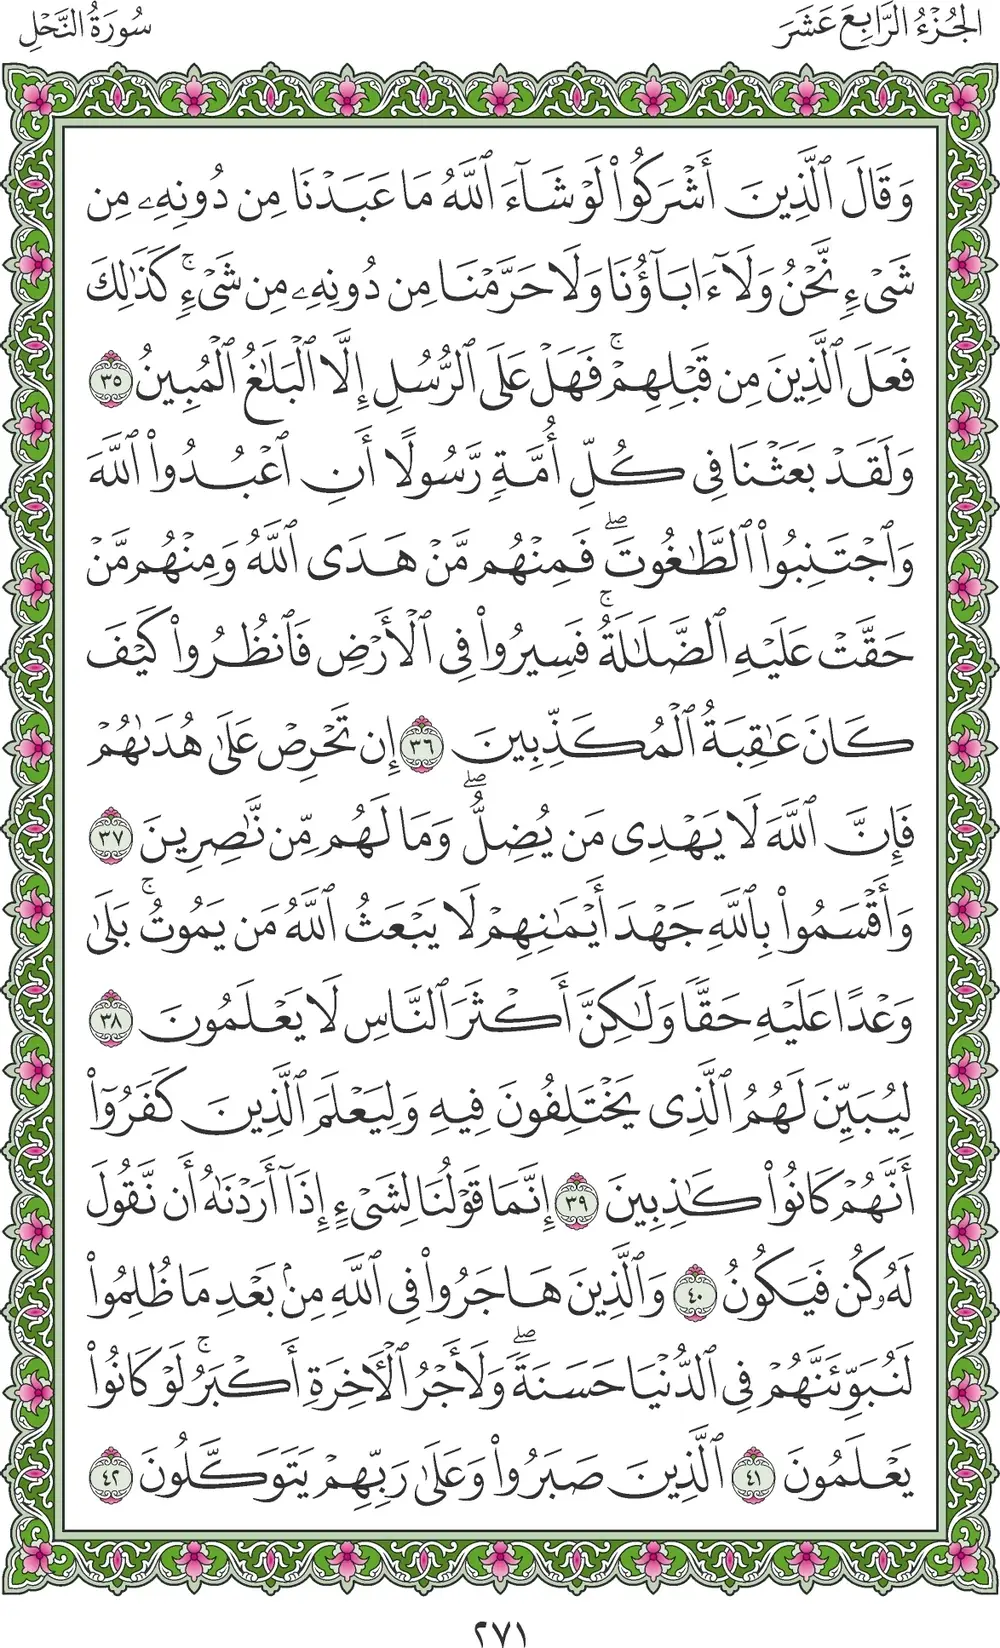 الجُزْءُ الرَّابِعَ عَشَرَ
سُورَةُ النَّحْلِ
وَقَالَ ٱلَّذِينَ أَشْرَكُوا۟ لَوْ شَآءَ ٱللَّهُ مَا عَبَدْنَا مِن دُونِهِۦ مِن
شَىْءٍ نَّحْنُ وَلَآ ءَابَآؤُنَا وَلَا حَرَّمْنَا مِن دُونِهِۦ مِن شَىْءٍ ۚ كَذَٰلِكَ
فَعَلَ ٱلَّذِينَ مِن قَبْلِهِمْ ۚ فَهَلْ عَلَى ٱلرُّسُلِ إِلَّا ٱلْبَلَٰغُ ٱلْمُبِينُ ٣٥
وَلَقَدْ بَعَثْنَا فِى كُلِّ أُمَّةٍ رَّسُولًا أَنِ ٱعْبُدُوا۟ ٱللَّهَ
وَٱجْتَنِبُوا۟ ٱلطَّٰغُوتَ ۖ فَمِنْهُم مَّنْ هَدَى ٱللَّهُ وَمِنْهُم مَّنْ
حَقَّتْ عَلَيْهِ ٱلضَّلَٰلَةُ ۚ فَسِيرُوا۟ فِى ٱلْأَرْضِ فَٱنظُرُوا۟ كَيْفَ
كَانَ عَٰقِبَةُ ٱلْمُكَذِّبِينَ ٣٦ إِن تَحْرِصْ عَلَىٰ هُدَىٰهُمْ
فَإِنَّ ٱللَّهَ لَا يَهْدِى مَن يُضِلُّ ۖ وَمَا لَهُم مِّن نَّٰصِرِينَ ٣٧
وَأَقْسَمُوا۟ بِٱللَّهِ جَهْدَ أَيْمَٰنِهِمْ لَا يَبْعَثُ ٱللَّهُ مَن يَمُوتُ ۚ بَلَىٰ
وَعْدًا عَلَيْهِ حَقًّا وَلَٰكِنَّ أَكْثَرَ ٱلنَّاسِ لَا يَعْلَمُونَ ٣٨
لِيُبَيِّنَ لَهُمُ ٱلَّذِى يَخْتَلِفُونَ فِيهِ وَلِيَعْلَمَ ٱلَّذِينَ كَفَرُوٓا۟
أَنَّهُمْ كَانُوا۟ كَٰذِبِينَ ٣٩ إِنَّمَا قَوْلُنَا لِشَىْءٍ إِذَآ أَرَدْنَٰهُ أَن نَّقُولَ
لَهُۥ كُن فَيَكُونُ ٤٠ وَٱلَّذِينَ هَاجَرُوا۟ فِى ٱللَّهِ مِنۢ بَعْدِ مَا ظُلِمُوا۟
لَنُبَوِّئَنَّهُمْ فِى ٱلدُّنْيَا حَسَنَةً ۖ وَلَأَجْرُ ٱلْـَٔاخِرَةِ أَكْبَرُ ۚ لَوْ كَانُوا۟
يَعْلَمُونَ ٤١ ٱلَّذِينَ صَبَرُوا۟ وَعَلَىٰ رَبِّهِمْ يَتَوَكَّلُونَ ٤٢
٢٧١